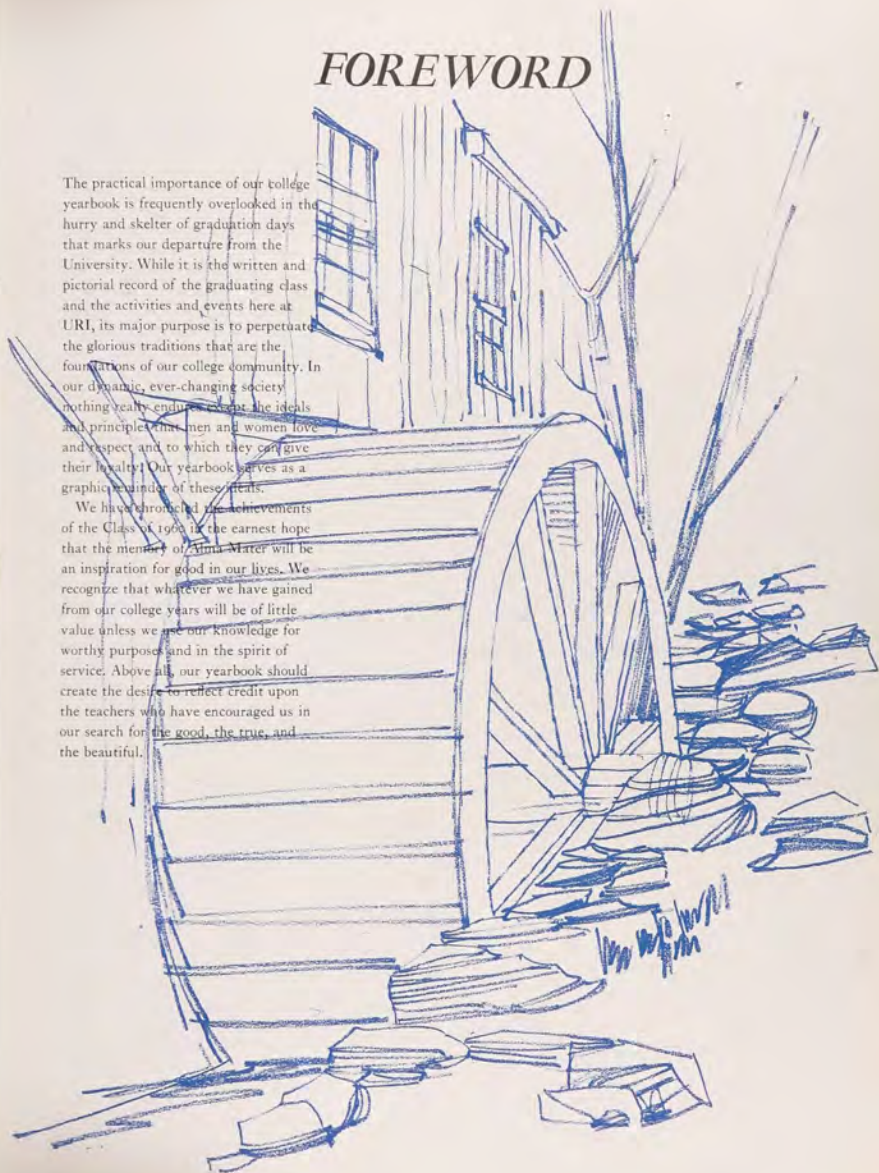 FOREWORD
The practical importance of our college
yearbook is frequently overlooked in the
hurry and skelter of graduation days
that marks our departure from the
University. While it is the written and
pictorial record of the graduating class
and the activities and events here at
URI, its major purpose is to perpetuate
the glorious traditions that are the
foundations of our college community. In
our dynamic, ever-changing society
nothing really endures except the ideals
and principles that men and women love
and respect and to which they can give
their loyalty. Our yearbook serves as a
graphic reminder of these ideals.
We have chronicled the achievements
of the Class of in the earnest hope
that the memory of Alma Mater will be
an inspiration for good in our lives. We
recognize that whatever we have gained
from our college years will be of little
value unless we use our knowledge for
worthy purposes and in the spirit of
service. Above all, our yearbook should
create the desire to reflect credit upon
the teachers who have encouraged us in
our search for the good, the true, and
the beautiful.